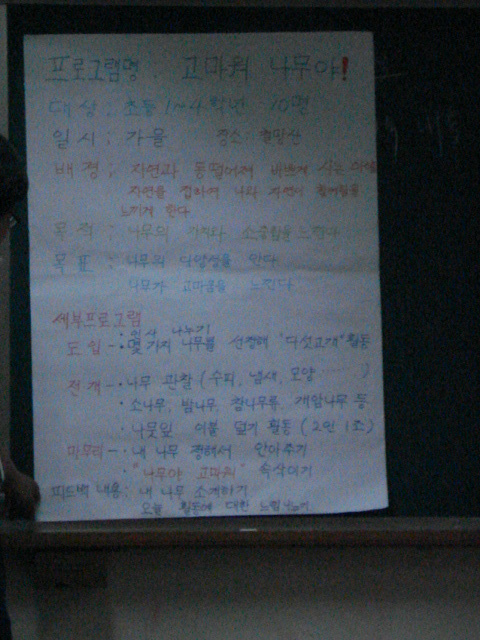 프로그램명 : 고마워 나무야!
대상 : 초등 1~4학년 10명
일시 : 가을 장소 :
배경 : 자연과 동떨어져 바쁘게 사는
자연을 접하여 나와 자연이 함께함을
느끼게 한다
목적 : 나무의 가치와 소중함을 느낀다
목표 : 나무의 다양성을 안다
나무가 고마움을 느낀다
세부프로그램
· 인사 나누기
도입 - · 몇가지 나무를 선정해 "다섯고개" 활동
전개 - · 나무 관찰 (수피, 냄새, 모양 ...... )
· 소나무, 밤나무, 참나무류, 개암나무 등
· 나뭇잎 이불 덮기 활동 (2인 1조)
마무리 - · 내 나무 정해서 안아주기
· "나무야 고마워" 속삭이기
피드백 내용 : 내 나무 소개하기
오늘 활동에 대한 느낌나누기